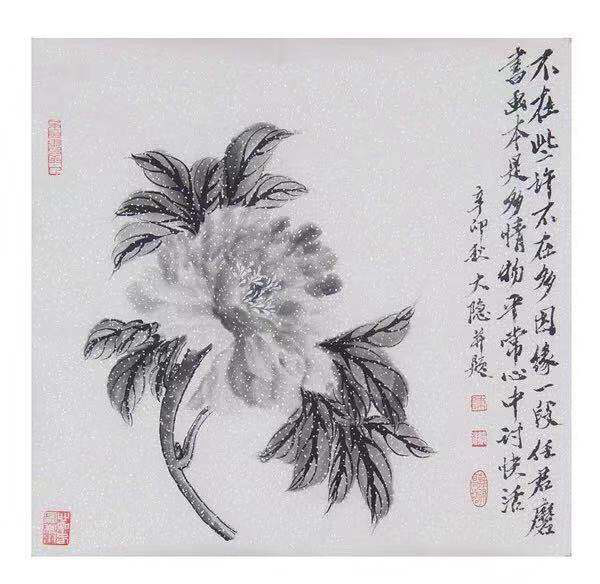 不在些许不在多因缘一段任君磨
書画本是多情物平常心中讨快活
辛卯秋大隐并题